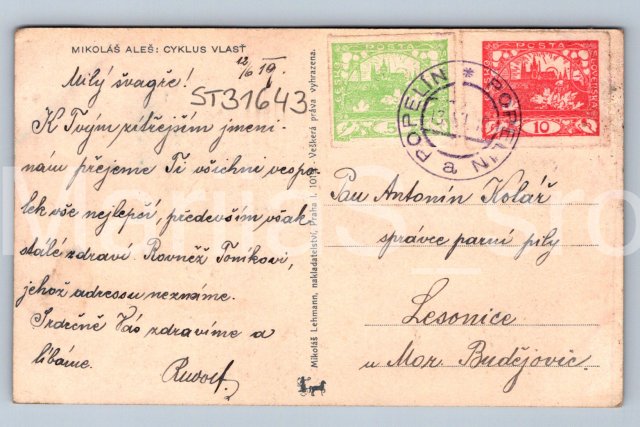 MIKOLÁŠ ALEŠ: CYKLUS VLASŤ
12/6 19.
Milý švagře!
ST31643
K Tvým zítřejším jmeni-
nám přejeme Ti všichni vespo-
lek vše nejlepší, především však
stálé zdraví. Rovněž Toníkovi,
jehož adressu neznáme.
Srdečně Vás zdravíme a
líbáme.
Rudolf
Mikoláš Lehmann, nakladatelství, Praha I. Veškerá práva vyhrazena.
POŠTA
ČESKO
5
POŠTA
ČESKO
SLOVENSKÁ
10
POPELÍN * POPELIN
a
Pan Antonín Kolář
správce parní pily
Lesonice
u Mor. Budějovic.